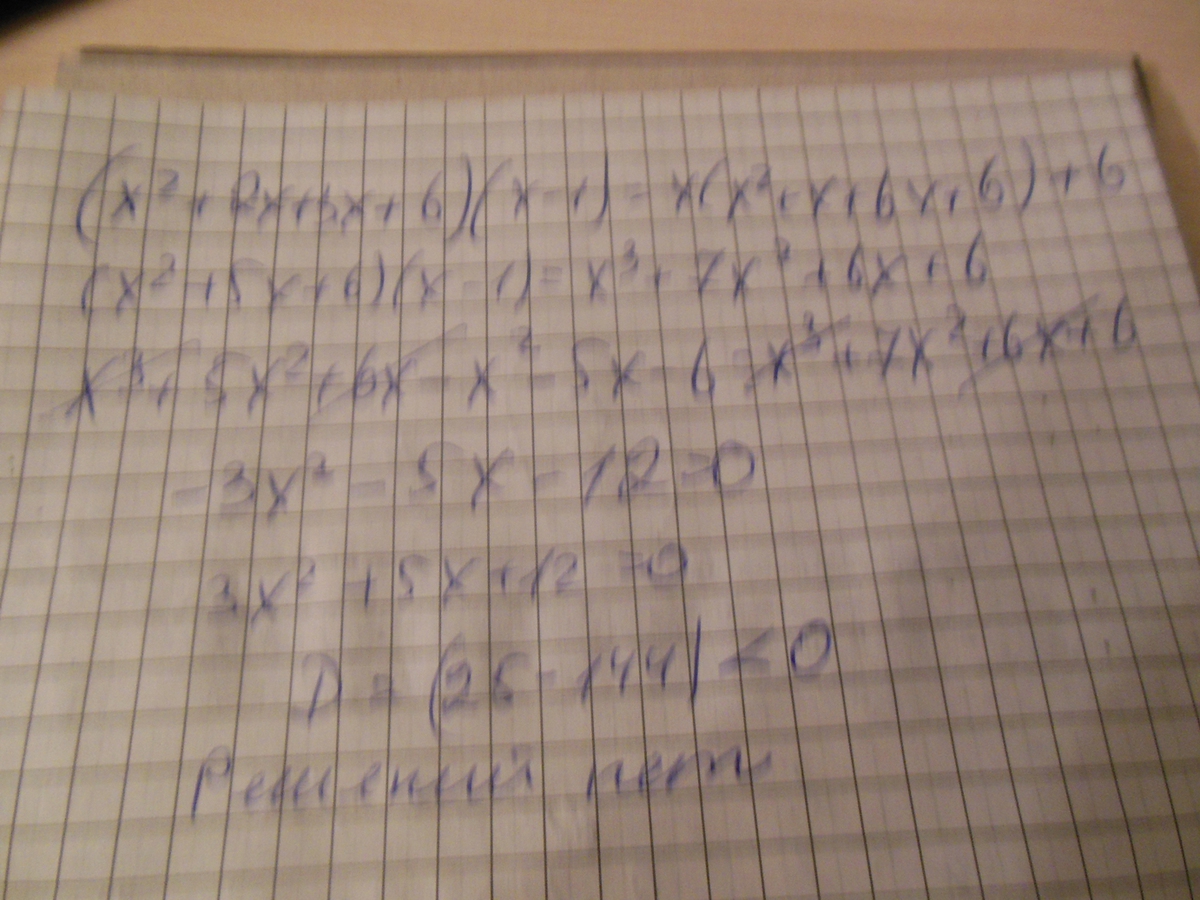 (x² + 2x + 3x + 6)(x - 1) = x(x² + x + 6x + 6) + 6
(x² + 5x + 6)(x - 1) = x³ + 7x² + 6x + 6
x³ + 5x² + 6x - x² - 5x - 6 = x³ + 7x² + 6x + 6
-3x² - 5x - 12 = 0
3x² + 5x + 12 = 0
D = (25 - 144) < 0
Решений нет